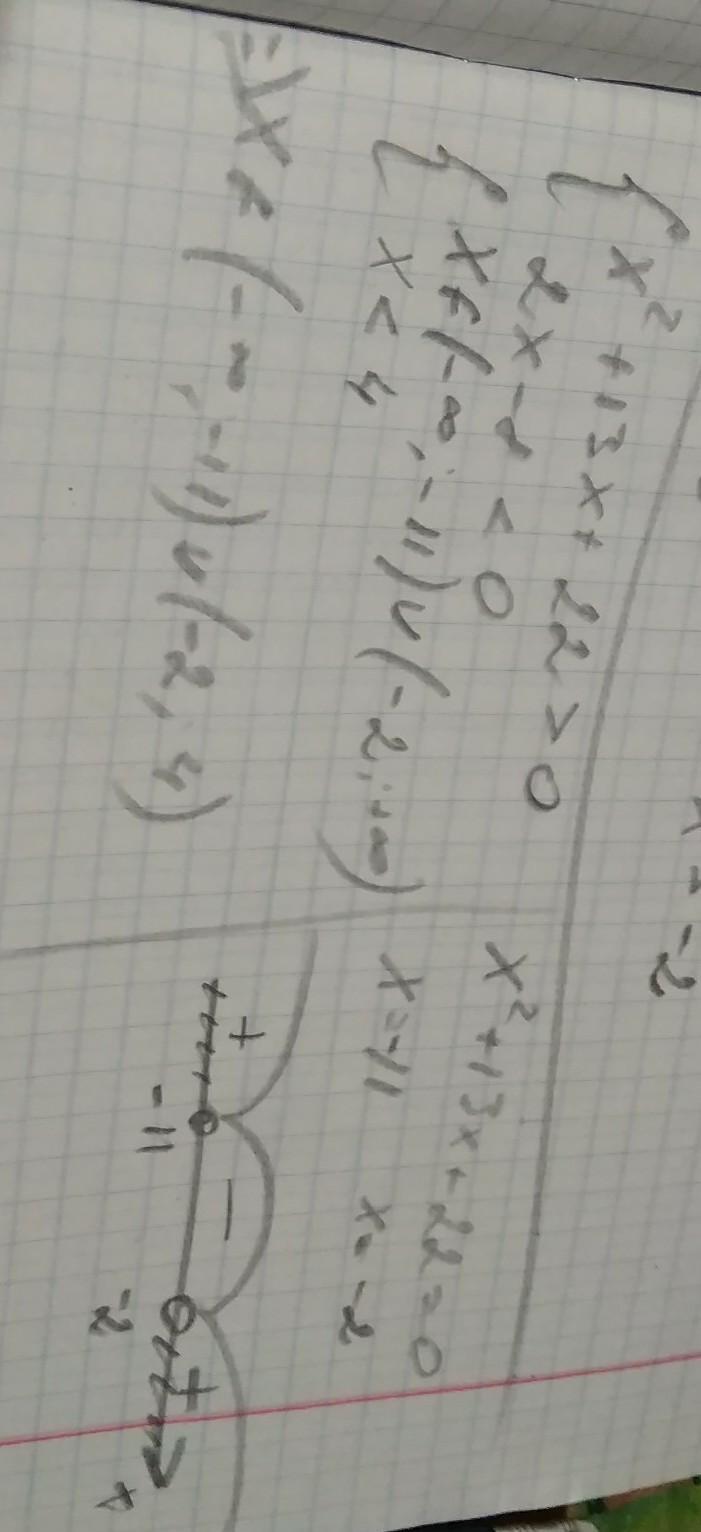 x = -2
{ x² + 13x + 22 > 0
2x - 8 < 0
{ x ∈ (-∞; -11) ∪ (-2; +∞)
x < 4
=> x ∈ (-∞; -11) ∪ (-2; 4)
x² + 13x + 22 = 0
x = -11 x = -2
+ − +
-11 -2 x